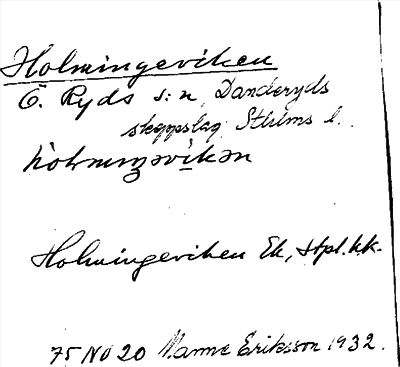 Holmingeviken
Ö. Ryds s:n, Danderyds
skeppslag Sthlms l.
Holmingeviken Ek, stpl. bl.
75 NO 20 Manne Eriksson 1932.